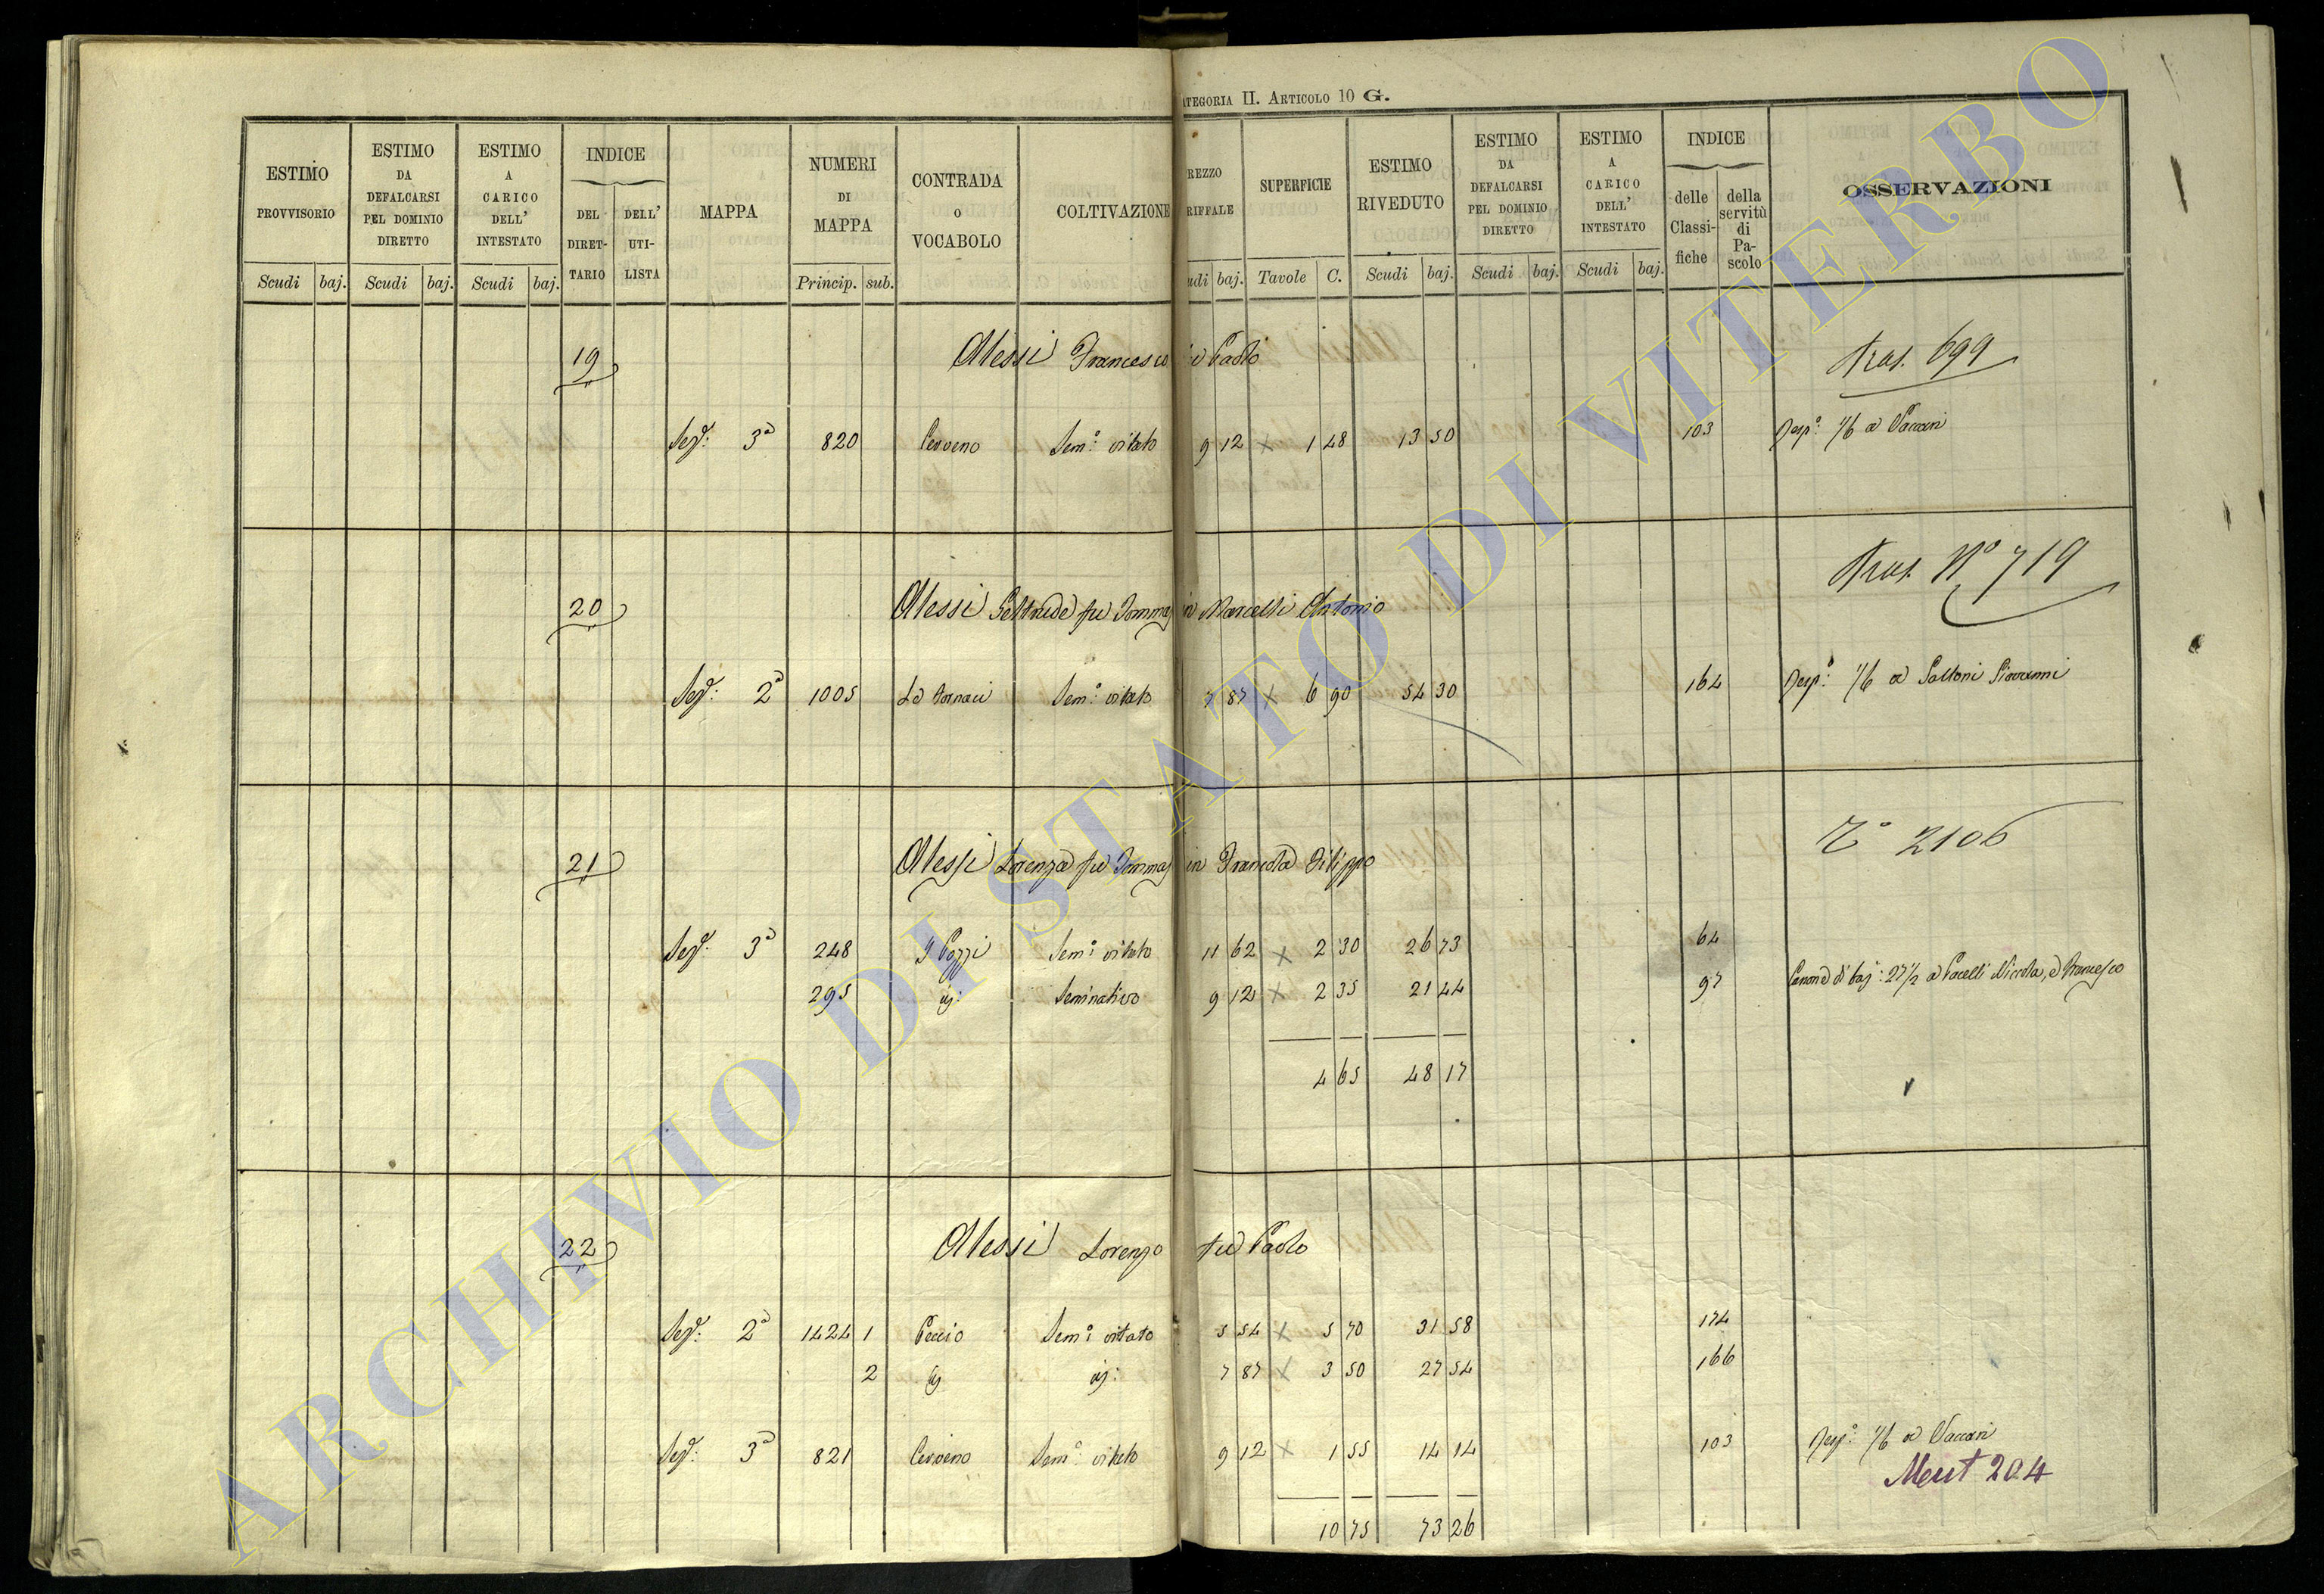 ATEGORIA II. ARTICOLO 10 G.
ESTIMO PROVVISORIO
Scudi baj.
ESTIMO DA DEFALCARSI PEL DOMINIO DIRETTO
Scudi baj.
ESTIMO A CARICO DELL' INTESTATO
Scudi baj.
INDICE
DEL DIRET- TARIO
DELL' UTI- LISTA
MAPPA
NUMERI DI MAPPA
Princip. sub.
CONTRADA O VOCABOLO
COLTIVAZIONE
REZZO RIFFALE
udi baj.
SUPERFICIE
Tavole C.
ESTIMO RIVEDUTO
Scudi baj.
ESTIMO DA DEFALCARSI PEL DOMINIO DIRETTO
Scudi baj.
ESTIMO A CARICO DELL' INTESTATO
Scudi baj.
INDICE
delle Classi- fiche
della servitù di Pa- scolo
OSSERVAZIONI
19 Alessi Francesco fu Paolo Tras. 699
Sez. 3a 820 Cerveno Sem.o vitato 9 12 1 48 13 50 103 Resp.o 1/6 a Vaccari
20 Alessi Geltrude fu Tommaso in Marcelli Antonio Tras. No 719
Sez. 2a 1005 Le Fornaci Sem.o vitato 7 87 6 90 54 30 164 Resp.o 1/6 a Giovanni
21 Alessi Lorenza fu Tommaso in Francola Filippo To 2106
Sez. 3a 248 I Pozzi Sem.o vitato 11 62 2 30 26 73 64
295 Seminativo 9 12 2 35 21 44 97 Canone di baj: 27 1/2 a Pacelli Nicola, e Francesco
4 65 48 17
22 Alessi Lorenzo fu Paolo
Sez. 2a 1424 1 Peccio Sem.o vitato 5 54 5 70 31 58 174
2 7 87 3 50 27 54 166
Sez. 3a 821 Cerveno Sem.o vitato 9 12 1 55 14 14 103 Resp.o 1/6 a Vaccari
204
10 75 73 26
ARCHIVIO DI STATO DI VITERBO